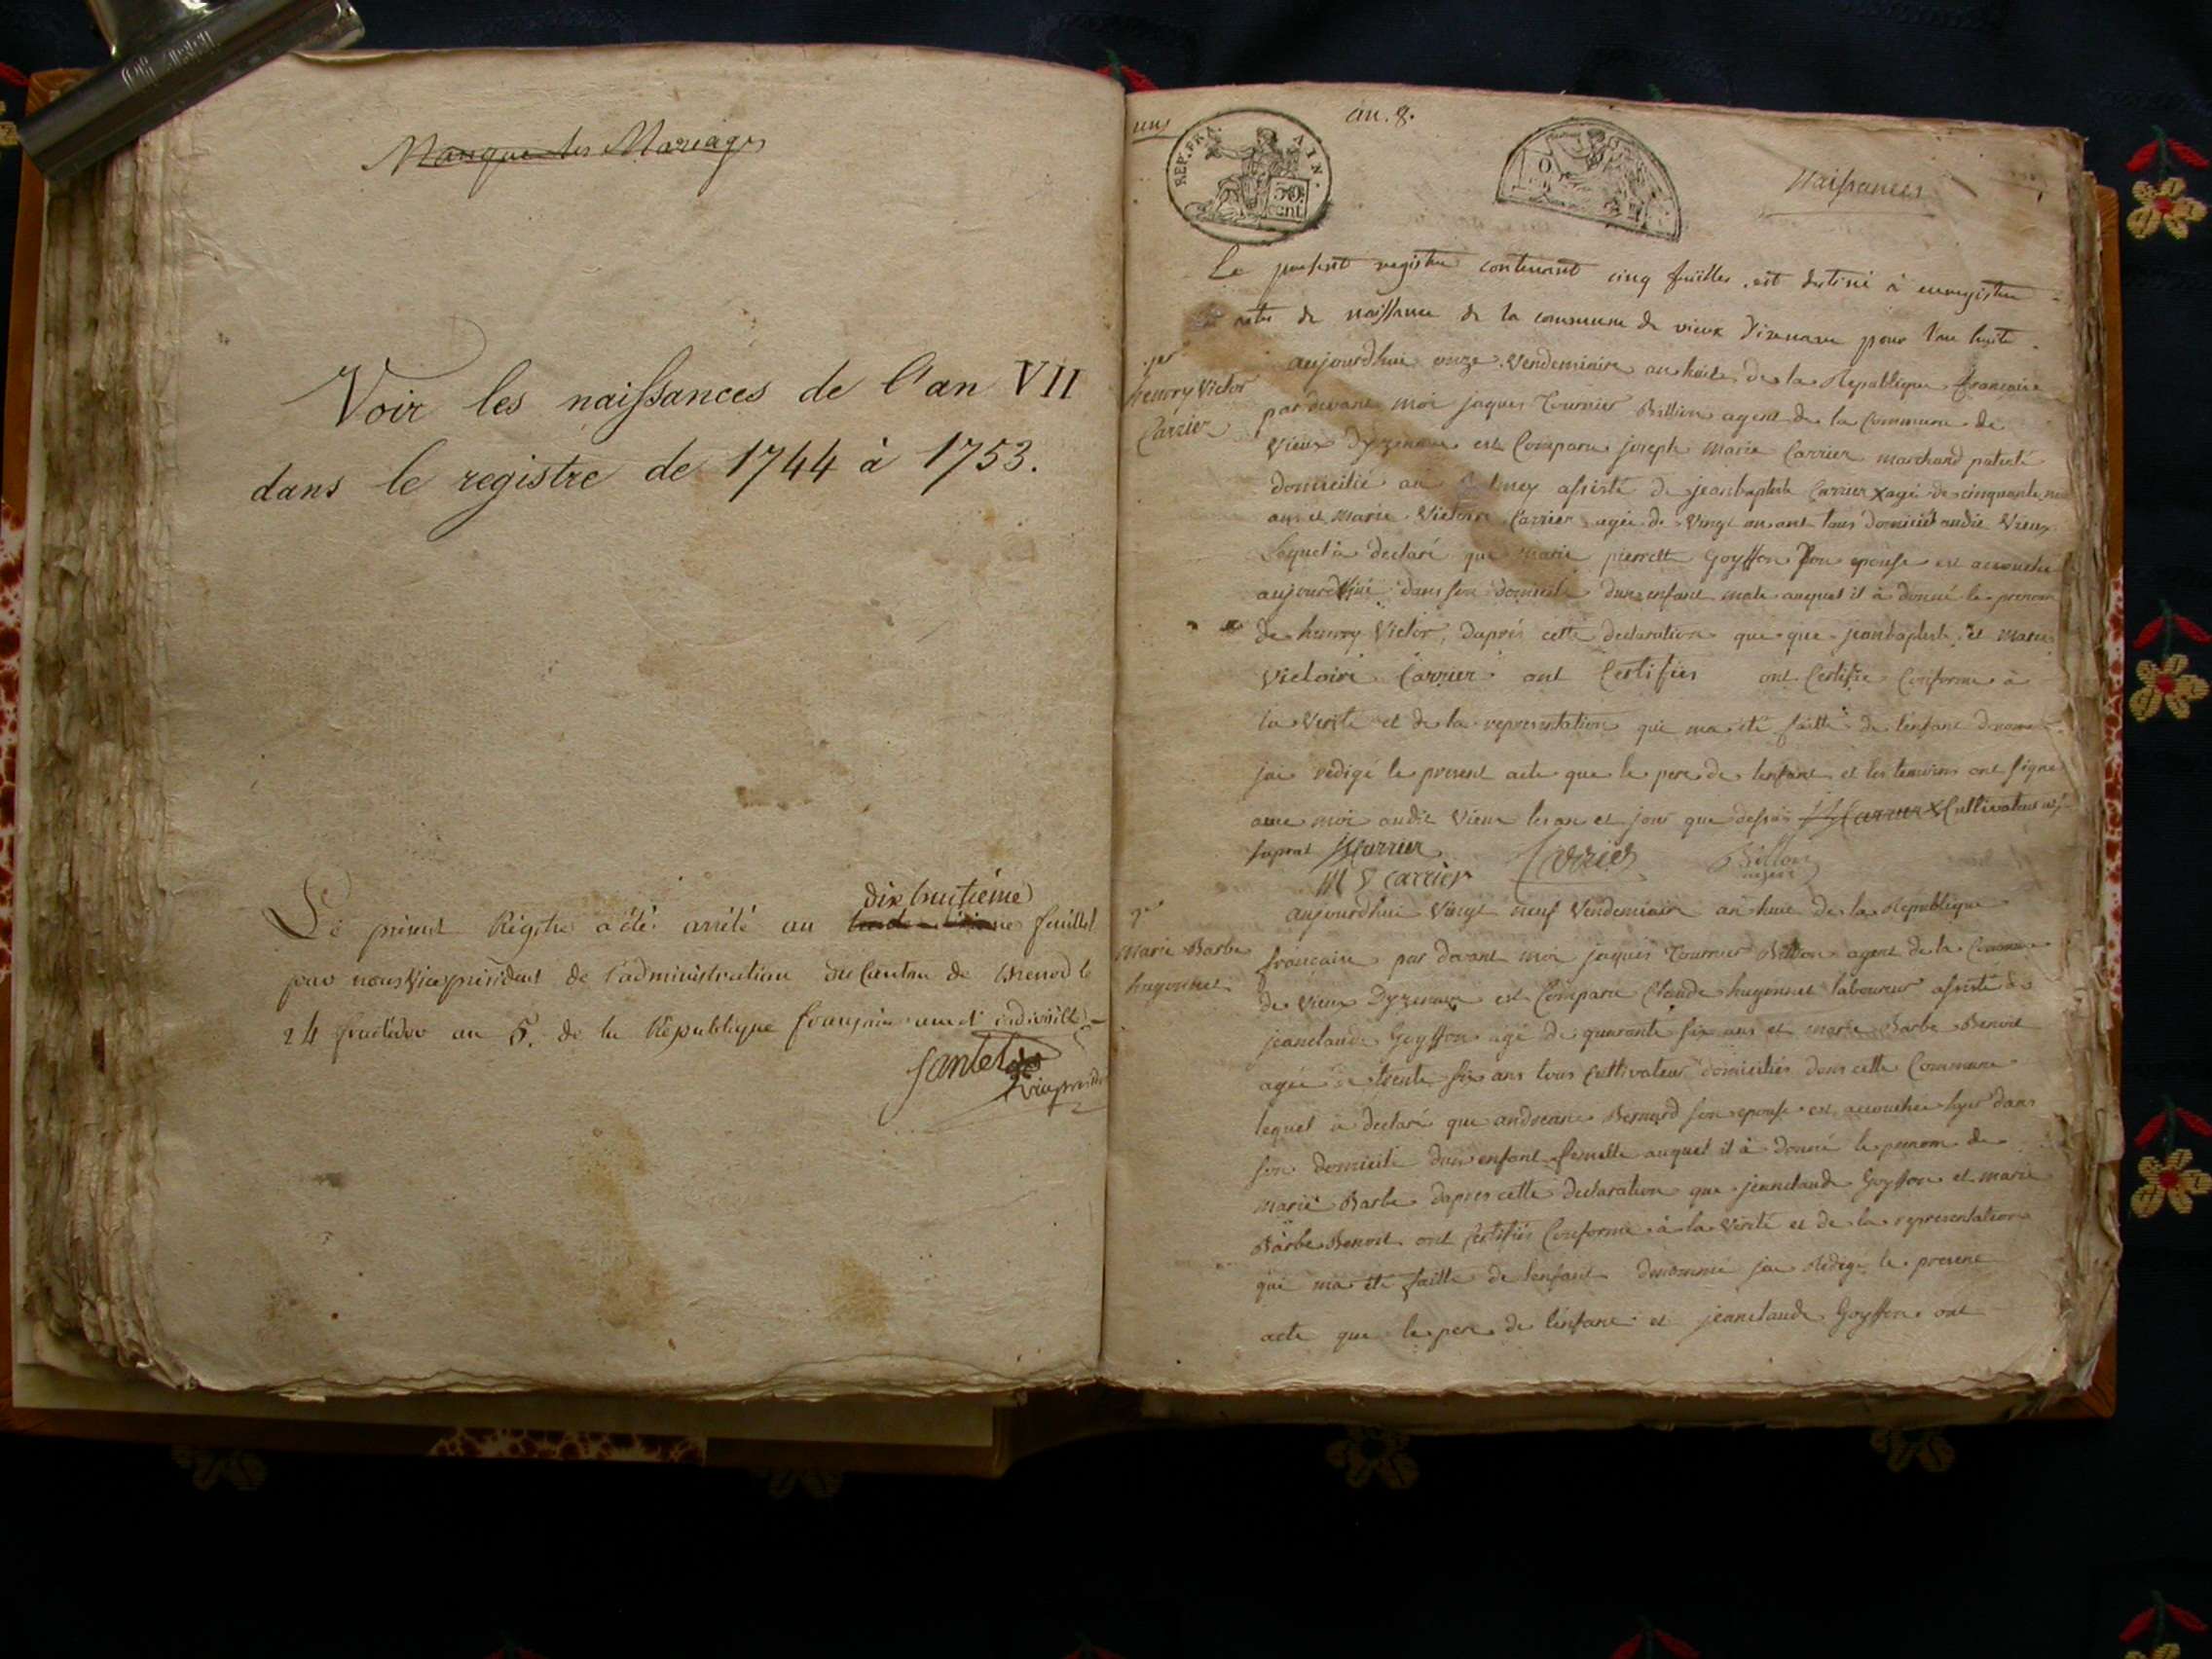 Manque les Mariages
Voir les naissances de l'an VII
dans le registre de 1744 à 1753.
dix huitième
Le présent Régitre a été arrêté au feuillet
par nous Vice président de l'administration du Canton de Brenod le
24 fructidor an 5. de la République française une et indivisible
vice président
an. 8.
REP. FRA. AIN.
50 cent
Naissances
Le present registre contenant cinq feuilles est destiné à enregistrer
actes de naissance de la commune de vieux Dizenave pour l'an huite
1er
henry Victor
Carrier
aujourdhui onze Vendemiaire an huite de la Republique francaise
par devant moi jaques Tournier Billion agent de la Commune de
Vieux Dyzenave est Comparu joseph Marie Carrier marchand patenté
domicilié au assisté de jeanbaptiste Carrier X agé de cinquante
ans et Marie Victoire Carrier agée de Vingt un ans tous domicilié audit Vieux
Lequel à declaré que marie pierrette Goyffon Son epouse est accouché
aujourdhui dans son domicile dun enfant male auquel il à donné le prenom
de henry Victor, daprés cette declaration que que jeanbaptiste et Marie
Victoire Carrier ont Certifiés ont Certifie Conforme à
la Verité et de la representation qui ma été faitte de lenfant denomé
jai redigé le present acte que le pere de lenfant et les temoins ont signe
avec moi audit Vieux les an et jour que dessus JB Carrier X Cultivateur
JB Carrier Carrier Billion
M V carrier agent
2e
Marie Barbe
hugonnet
aujourdhui Vingt neuf Vendemiaire an huit de la République
francaise par devant moi jaques Tournier Billion agent de la Commune
de Vieux Dyzenave est Comparu Claude hugonnet laboureur assisté de
jeanclaude Goyffon agé de quarante six ans et marie Barbe Benoit
agée de trente six ans tous Cultivateur domiciliés dans cette Commune
lequel à declaré que andreanne Bernard son epouse est accouchée hyer dans
son domicile dun enfant femelle auquel il à donné le prenom de
marie Barbe dapres cette declaration que jeanclaude Goyffon et marie
Barbe Benoit ont Certifiés Conforme à la Verité et de la representation
qui ma été faitte de lenfant denommé jai Redigé le present
acte que le pere de lenfant et jeanclaude Goyffon ont